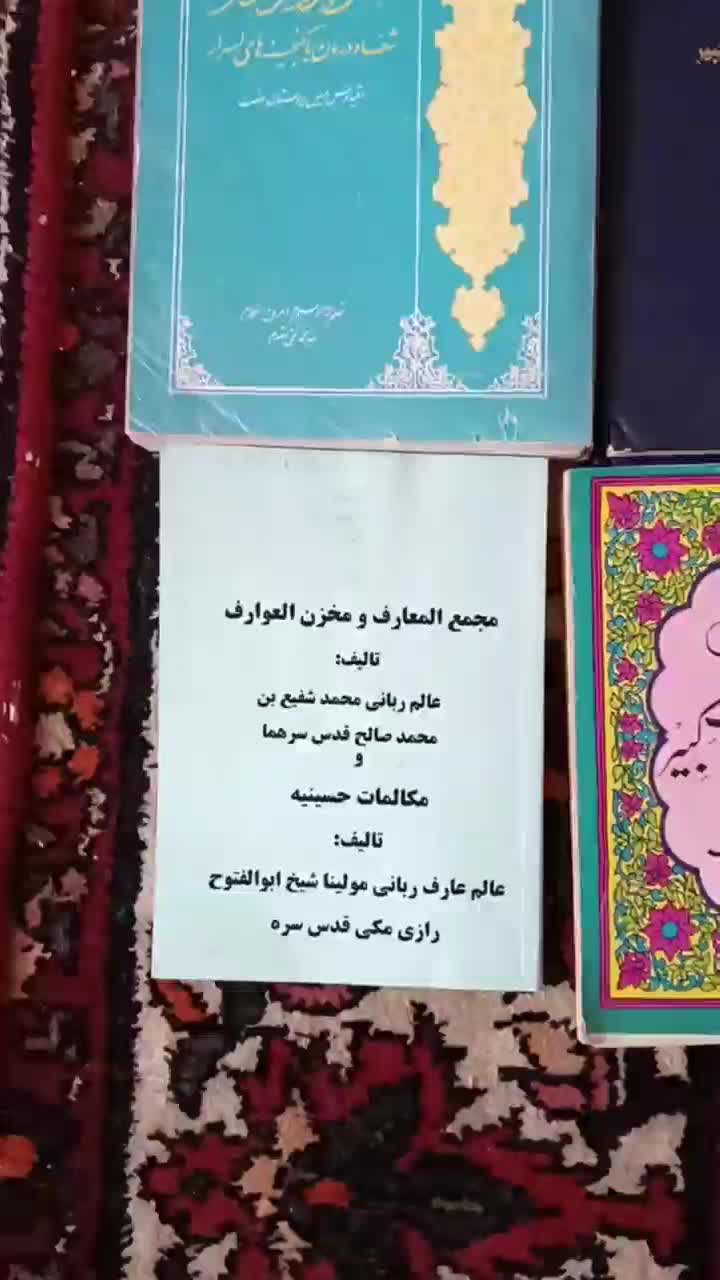 شفا و درمان با گنجینه‌های اسرار
مجمع المعارف و مخزن العوارف
تالیف:
عالم ربانی محمد شفیع بن
محمد صالح قدس سرهما
و
مکالمات حسینیه
تالیف:
عالم عارف ربانی مولینا شیخ ابوالفتوح
رازی مکی قدس سره
کبیر